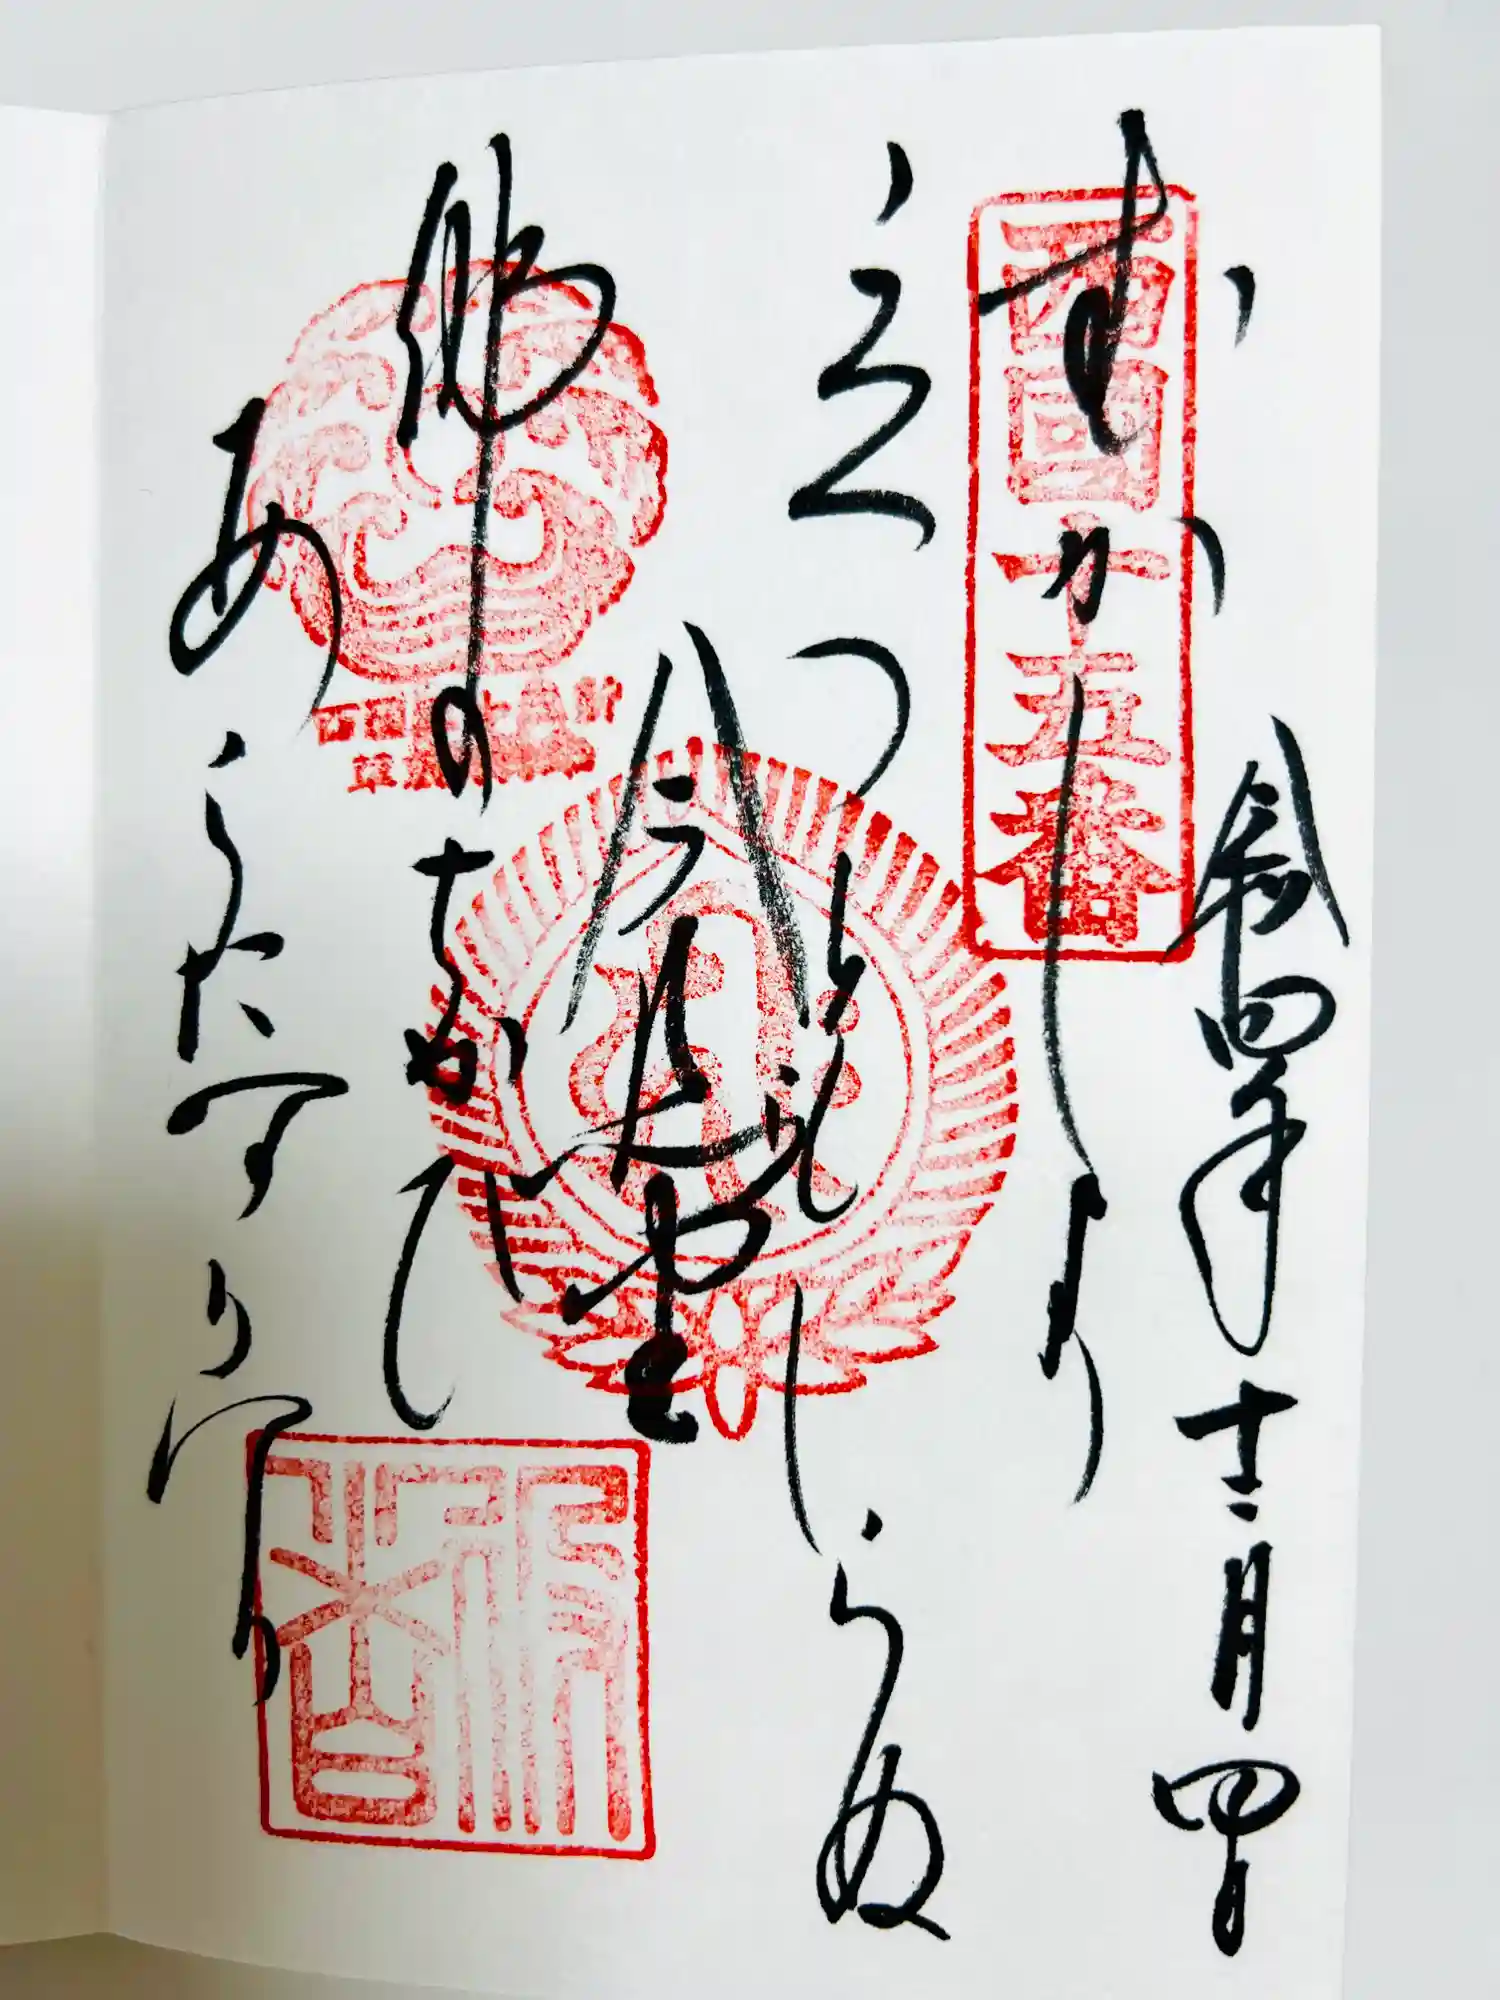 令和四年十二月四日
西國十五番
むかしより
立つともしらぬ
今熊野
佛のちかひ
あらたなりけり